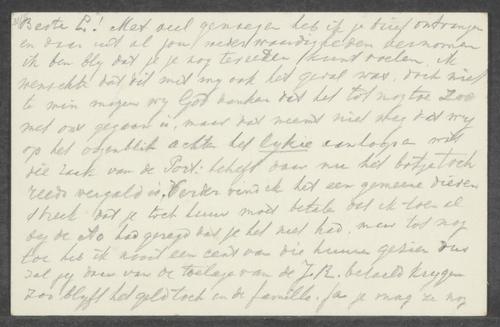 Beste L.! Met veel genoegen heb ik je brief ontvangen
en daar uit al jou wederwaardigheden vernomen
ik ben bly dat je je nog tevreden kunt voelen. Ik
wenschte dat dit met my ook het geval was, doch niet
te min mogen wy God danken dat het tot nog toe zoo
met ons gegaan is, maar dat neemt niet weg dat wy
op het oogenblik achter het lykie aanloopen wat
die zaak van de Port: betreft daar nu het potje toch
reeds vergald is. Verder vind ik het een gemeene dieven
streek dat je toch huur moet betale dat ik toen al
by de had gezegd dat je het niet had, men tot nog
toe heb ik nooit een cent van die huur gezien dus
zal jy daar van de toelage van de J.R. betaald krygen
zoo blyft het geld toch in de famillie. Ja je mag ze nog